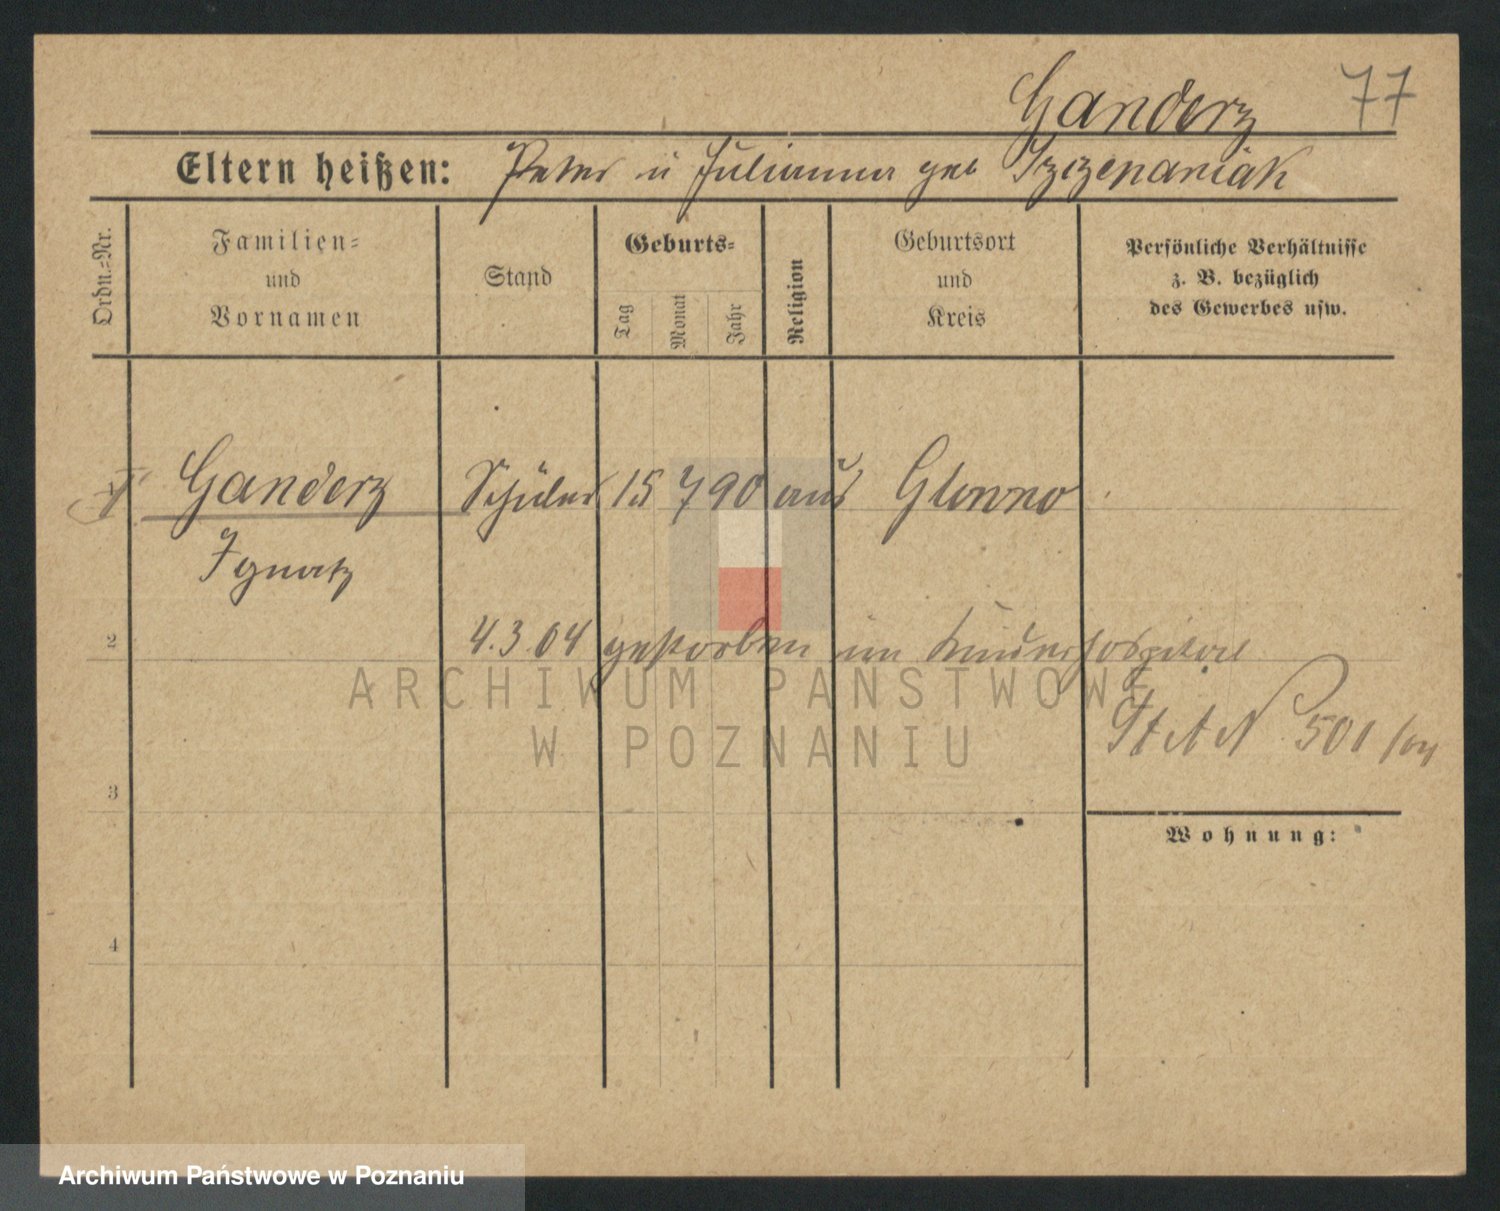 Ganderz 77
Eltern heißen: Peter u Julianna geb
Ordn.=Nr.
Familien=
und
Vornamen
Stand
Geburts=
Tag
Monat
Jahr
Religion
Geburtsort
und
Kreis
Persönliche Verhältnisse
z. B. bezüglich
des Gewerbes usw.
Ganderz Schüler 15 7 90 aus Glowno
Ignatz
2
4.3.04 gestorben im Kinderhospital
ARCHIWUM PAŃSTWOWE
W POZNANIU
St A N 501/04
3
Wohnung:
4
Archiwum Państwowe w Poznaniu